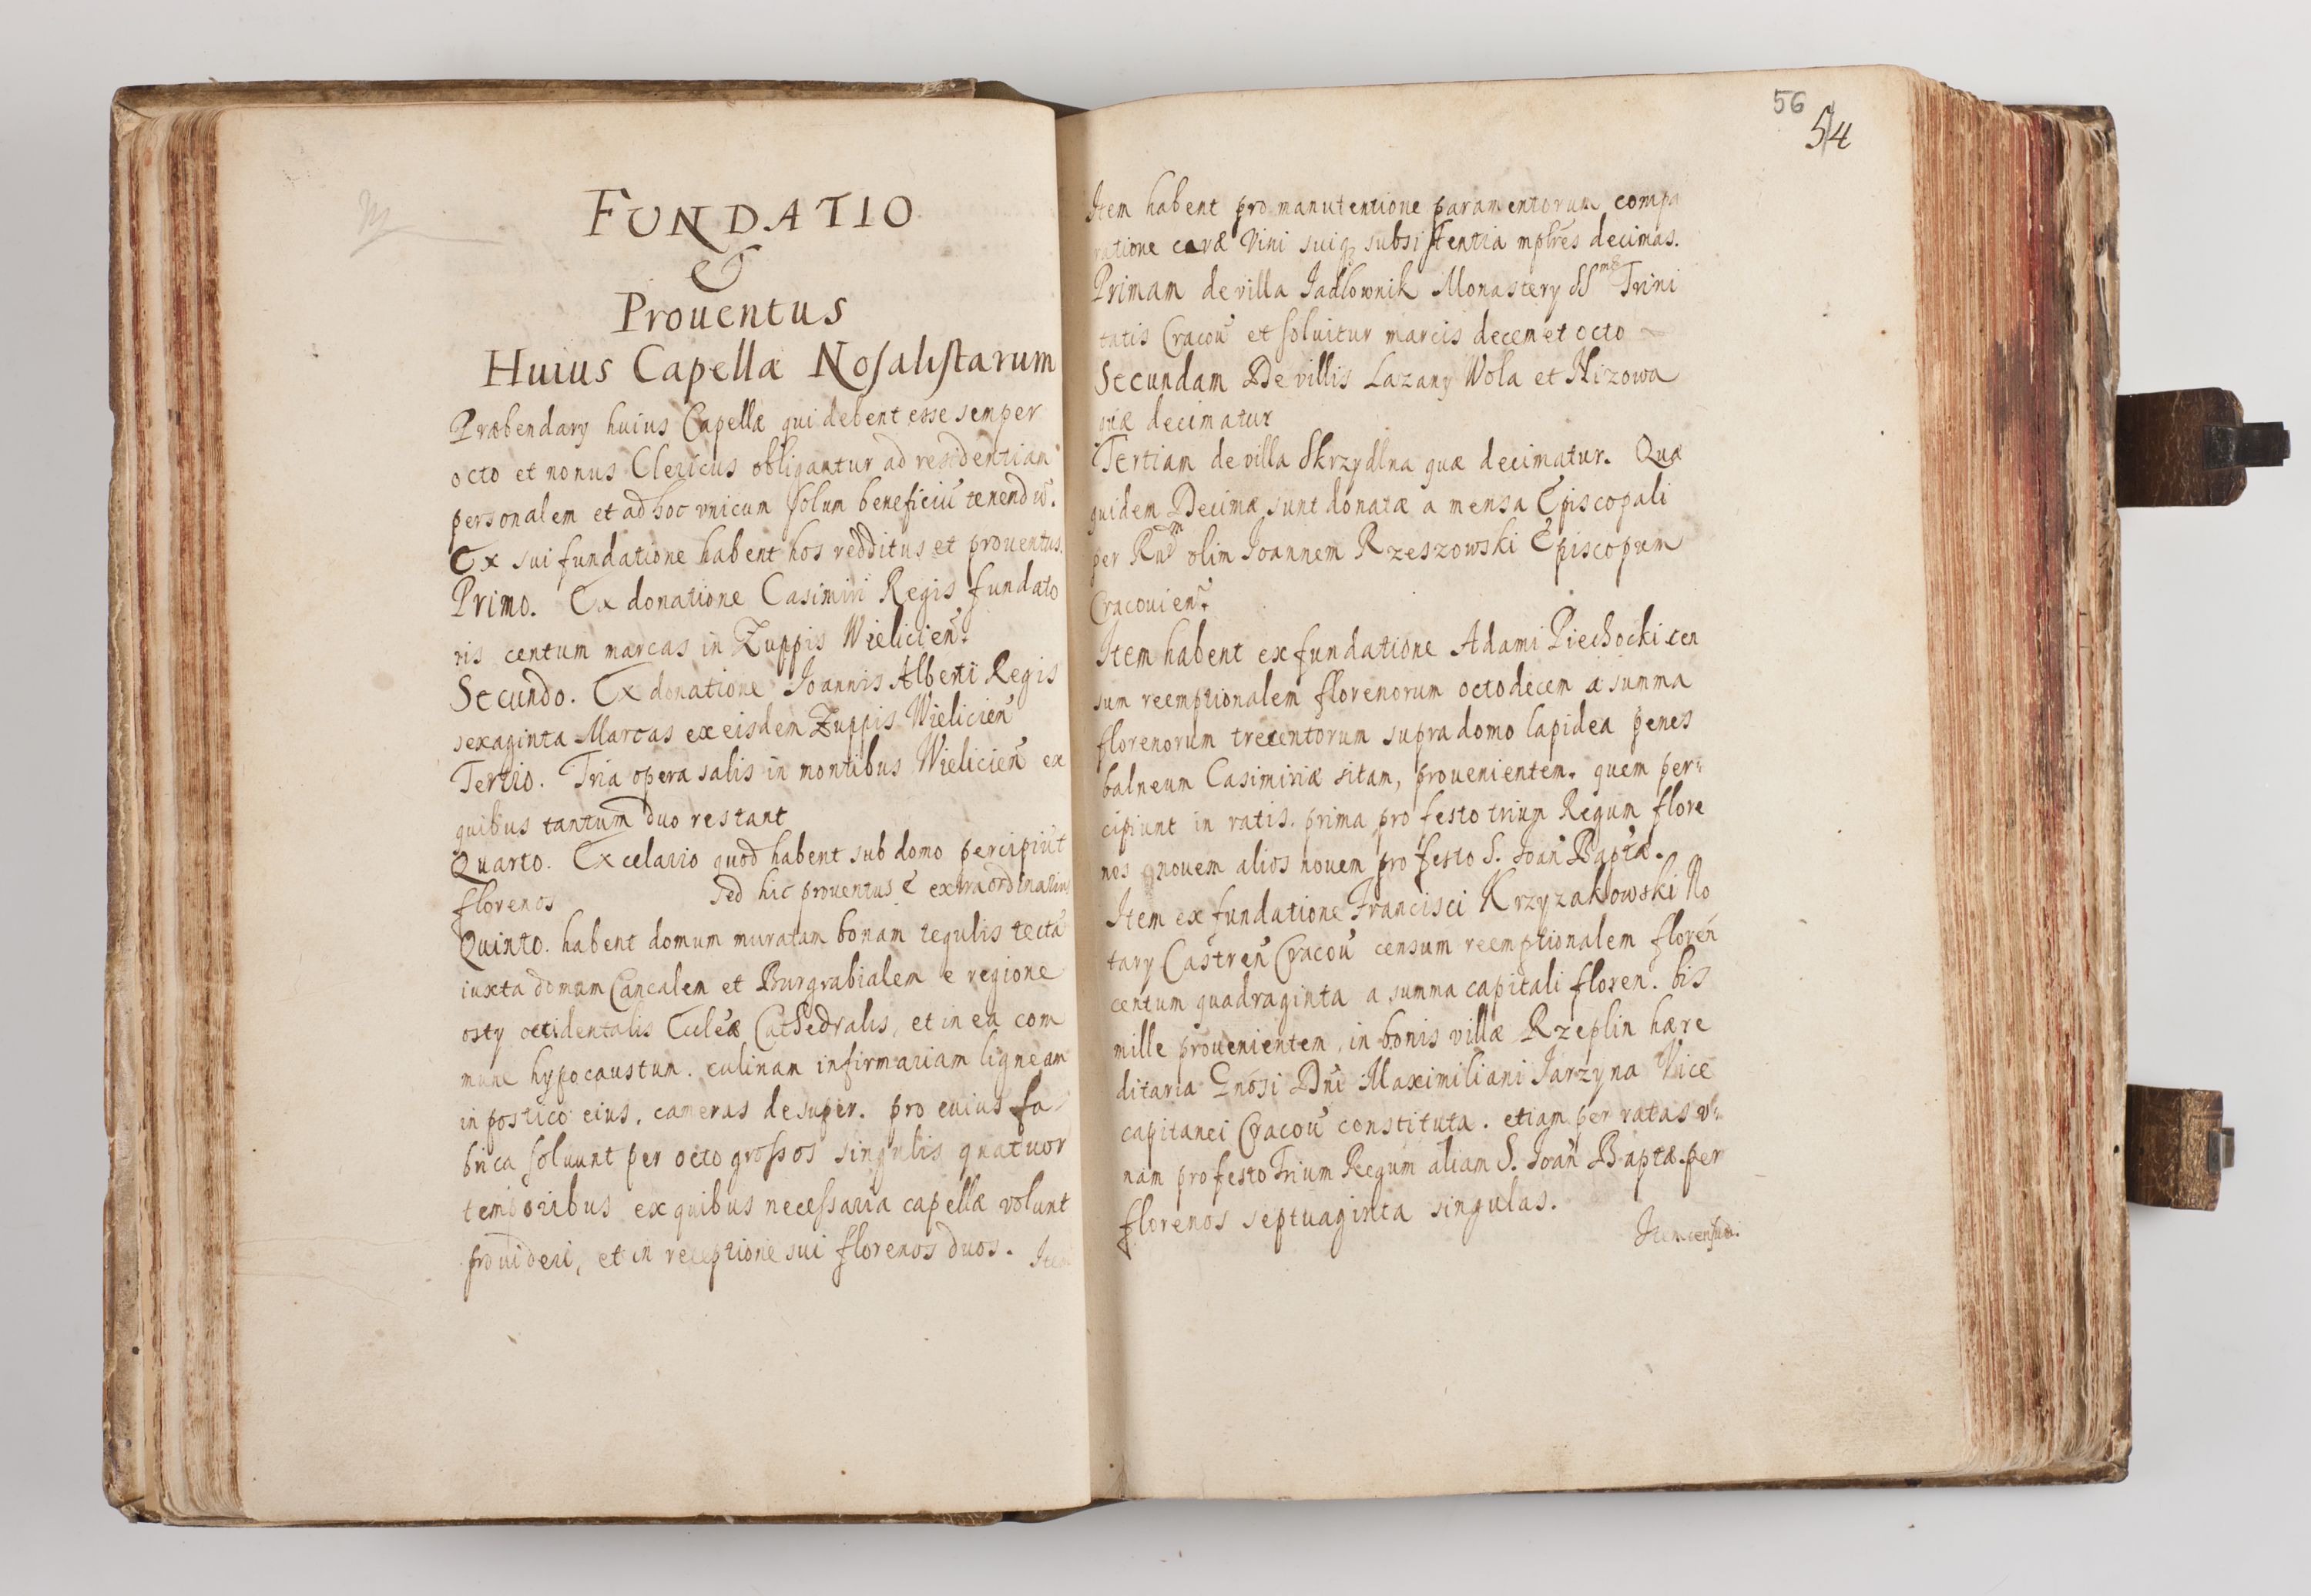 FUNDATIO
&
Prouentus
Huius Capellæ Nosalistarum
Præbendary huius Capellæ qui debent esse semper
octo et nonus Clericus obligantur ad residentiam
personalem et ad hoc vnicum solum beneficiū tenendū.
Ex sui fundatione habent hos redditus et prouentus.
Primo. Ex donatione Casimiri Regis fundato
ris centum marcas in Zuppis Wielicień.
Secundo. Ex donatione Joannis Alberti Regis
sexaginta Marcas ex eisdem Zuppis Wielicień
Tertio. Tria opera salis in montibus Wielicień ex
quibus tantum duo restant
Quarto. Ex celario quod habent sub domo percipiūt
florenos sed hic prouentus ē extraordinarius
Quinto. habent domum muratam bonam tegulis tectā
iuxta domum Cancalem et Burgrabialem e regione
osty occidentalis Ecclēæ Cathedralis, et in ea com
mune hypocaustum. culinam infirmariam ligneam
in postico eius. cameras desuper. pro cuius fa
brica soluunt per octo grossos singulis quatuor
temporibus ex quibus necessaria capellæ volunt
prouideri, et in receptione sui florenos duos. Item
56
54
Item habent pro manutentione paramentorum compa
ratione ceræ vini suiq subsistentia mplrēs decimas.
Primam de villa Jadlownik Monastery SSmæ Trini
tatis Cracoū et soluitur marcis decem et octo
Secundam De villis Lazany Wola et Hizowa
quæ decimatur
Tertiam de villa Skrzydlna quæ decimatur. Quæ
quidem Decimæ sunt donatæ a mensa Episcopali
per Rndm olim Joannem Rzeszowski Episcopum
Cracouień.
Item habent ex fundatione Adami Piechocki cen
sum reemptionalem florenorum octodecem a summa
florenorum trecentorum supra domo lapidea penes
balneum Casimiriæ sitam, prouenientem. quem per
cipiunt in ratis. prima pro festo trium Regum flore
nos nouem alios nouem pro festo S. Joań Baptæ.
Item ex fundatione Francisci Krzyzakowski No
tary Castreń Cracoū censum reemptionalem floreń
centum quadraginta a summa capitali floren. bis
mille prouenientem, in bonis villæ Rzeplin hære
ditaria Gnosi Dni Maximiliani Jarzyna Vice
capitanei Cracoū constituta. etiam per ratas v
nam pro festo Trium Regum aliam S. Joań Baptæ. per
florenos septuaginta singulas.
Item censum